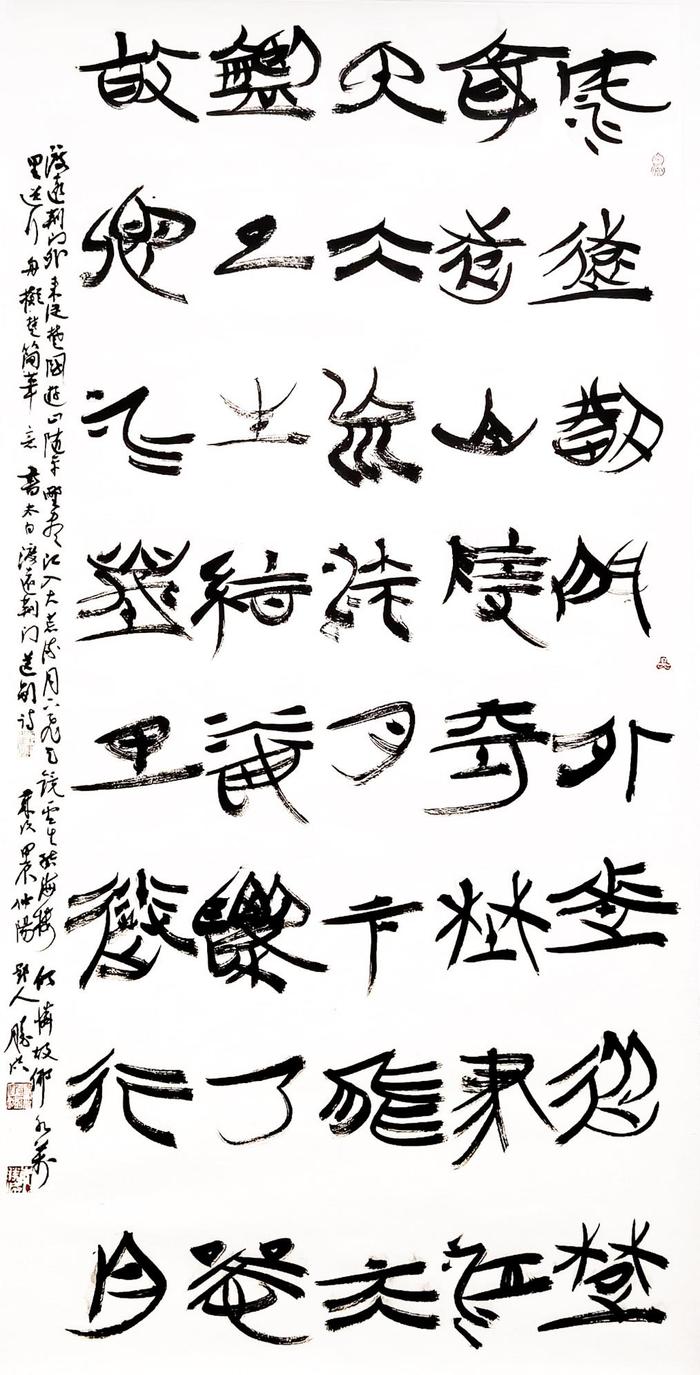 渡遠荊門外來從楚
國遊山隨平野盡江
入大荒流月下飛天
鏡雲生結海樓仍憐
故鄉水萬里送行舟
渡遠荊門外來從楚國遊山隨平野盡江入大荒流月下飛天鏡雲生結海樓仍憐故鄉水萬
里送行舟 擬楚簡筆意 書太白渡遠荊門送別詩 歲次甲辰仲陽